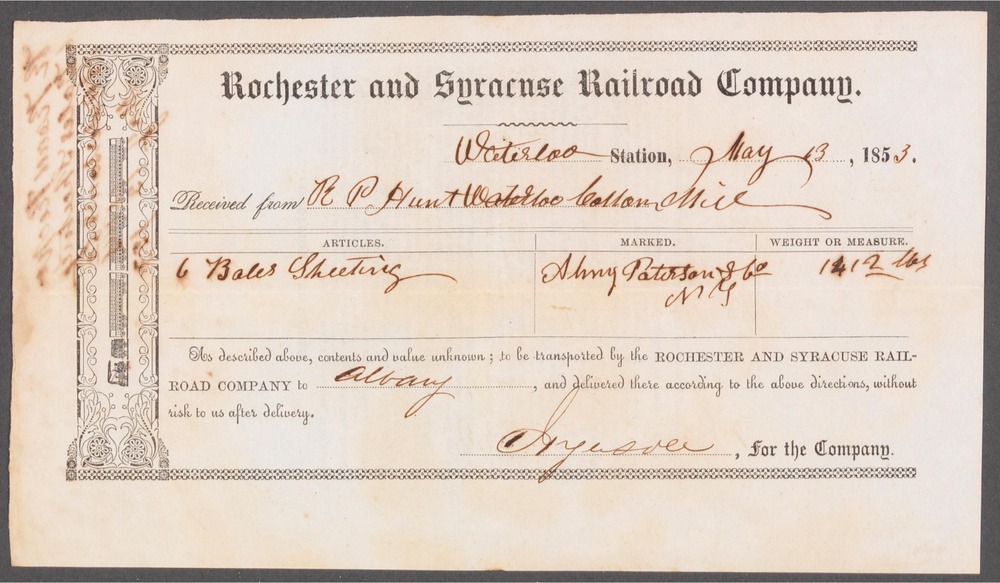 Rochester and Syracuse Railroad Company.
Waterloo Station, May 13, 1853.
Received from R P Hunt Waterloo Cotton Mill
ARTICLES. MARKED. WEIGHT OR MEASURE.
6 Bales Sheeting Almy Paterson & Co 1412 lbs
N Y
As described above, contents and value unknown; to be transported by the ROCHESTER AND SYRACUSE RAIL-
ROAD COMPANY to Albany, and delivered there according to the above directions, without
risk to us after delivery.
, For the Company.